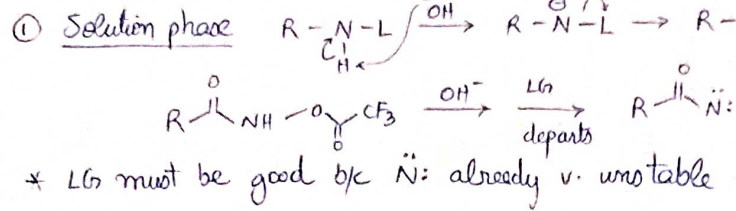 ① Solution phase R - N - L OH → R - N - L → R -
H
R O NH - O CF3 O OH- → LG departs → R O N:
* LG must be good b/c N: already v. unstable